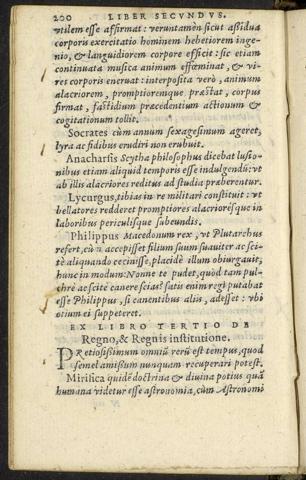 200 LIBER SECVNDVS.
vtilem esse affirmat: veruntamẽn sicut assidua
corporis exercitatio hominem hebetiorem inge-
nio, & languidiorem corpore efficit: sic etiam
continuata musica animum effœminat, & vi-
res corporis eneruat: interposita verò, animum
alacriorem, promptioremque præstat, corpus
firmat, fastidium præcedentium actionum &
cogitationum tollit.
Socrates cùm annum sexagesimum ageret,
lyra ac fidibus erudiri non erubuit.
Anacharsis Scytha philosophus dicebat lusio-
nibus etiam aliquid temporis esse indulgendũ: vt
ab illis alacriores reditus ad studia præberentur.
Lycurgus, tibias in re militari constituit: vt
bellatores redderet promptiores alacriorésque in
laboribus periculísque subeundis.
Philippus Macedonum rex, vt Plutarchus
refert, cũ accepisset filium suum suauiter ac sci-
tè aliquando cecinisse, placidè illum obiurgauit,
hunc in modum: Nonne te pudet, quòd tam pul-
chrè ac scitè canere scias? satis enim regi putabat
esse Philippus, si canentibus aliis, adesset: vbi
otium ei suppeteret.
EX LIBRO TERTIO DE
Regno, & Regnis institutione.
PRetiosissimum omniũ rerũ est tempus, quod
semel amissum nunquam recuperari potest.
Mirifica quidẽ doctrina & diuina potius quã
humana videtur esse astronomia, cùm Astronomi